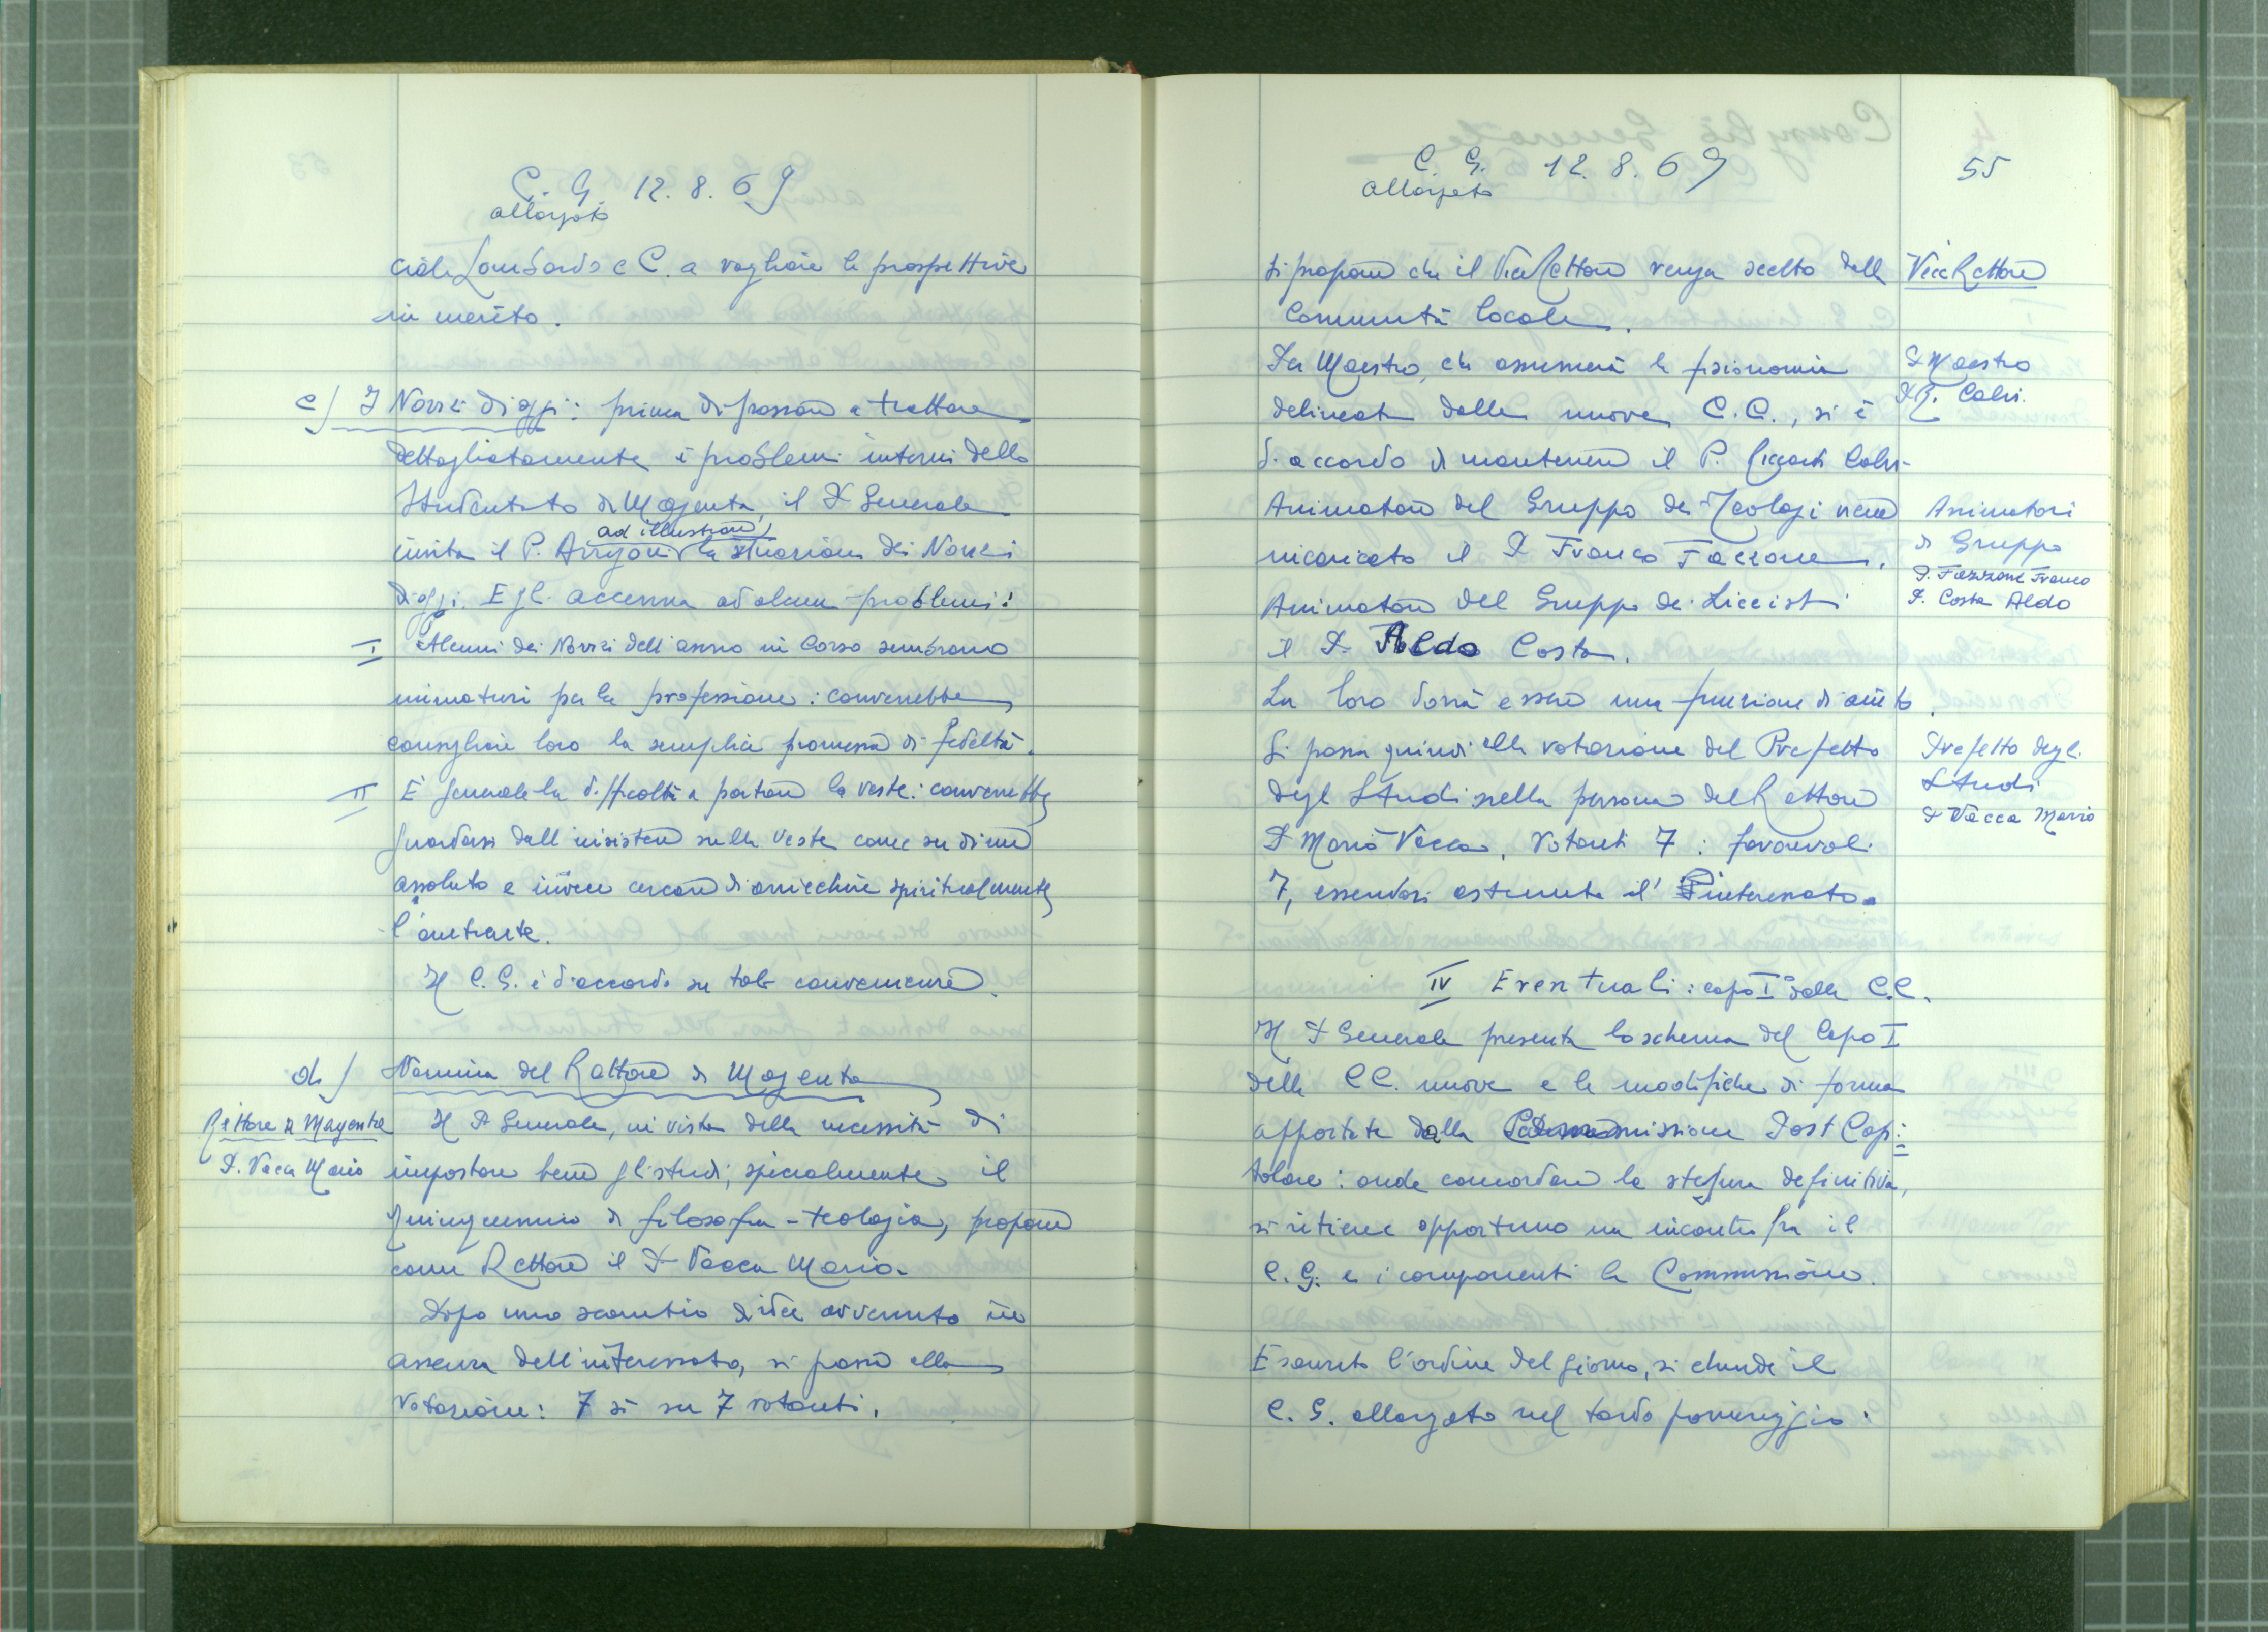 C. G. 12.8.69
allargato
ciale Lombardo e C. a vagliare le prospettive
in merito.
c) I Novizi di oggi: prima di passare a trattare
dettagliatamente i problemi interni dello
Studentato di Magenta, il P. Generale
ad illustrare
invita il P. Arrigoni la situazione dei Novizi
di oggi. Egli accenna ad alcuni problemi:
I Alcuni dei Novizi dell'anno in corso sembrano
immaturi per la professione: converrebbe
consigliare loro la semplice promessa di fedeltà.
II È generale la difficoltà a portare la veste: converrebbe
guardarsi dall'insistere sulla veste come su di un
assoluto e invece cercare di arricchire spiritualmente
l'entrante.
Il C.G. è d'accordo su tale convenienza.
d) Nomina del Rettore di Magenta
Rettore di Magenta
P. Vacca Mario
Il P. Generale, in vista della necessità di
impostare bene gli studi, specialmente il
quinquennio di filosofia-teologia, propone
come Rettore il P. Vacca Mario.
Dopo uno scambio di idee avvenuto in
assenza dell'interessato, si passa alla
votazione: 7 sì su 7 votanti.
C. G. 12.8.69
allargato
55
Si propone che il ViceRettore venga scelto dalla
Comunità locale.
ViceRettore
Per Maestro, che assumerà la fisionomia
delineata dalle nuove C.C., si è
d'accordo di mantenere il P. Calvi.
P. Maestro
P. R. Calvi.
Animatore del Gruppo dei Teologi viene
incaricato il P. Franco Fazzone.
Animatore del Gruppo dei Liceisti
il P. Aldo Costa.
Animatori
di Gruppo
P. Fazzone Franco
P. Costa Aldo
La loro dovrà essere una funzione di aiuto.
Si passa quindi alla votazione del Prefetto
degli Studi nella persona del Rettore
P. Mario Vacca. Votanti 7: favorevoli
7, essendosi astenuto l'interessato.
Prefetto degli
Studi
P. Vacca Mario
IV Eventuali: capo I° delle C.C.
Il P. Generale presenta lo schema del Capo I
delle CC. nuove e le modifiche di forma
apportate dalla Commissione Post Capi=
tolare: onde concordare la stesura definitiva,
si ritiene opportuno un incontro fra il
C.G. e i componenti la Commissione.
Esaurito l'ordine del giorno, si chiude il
C.G. allargato nel tardo pomeriggio.